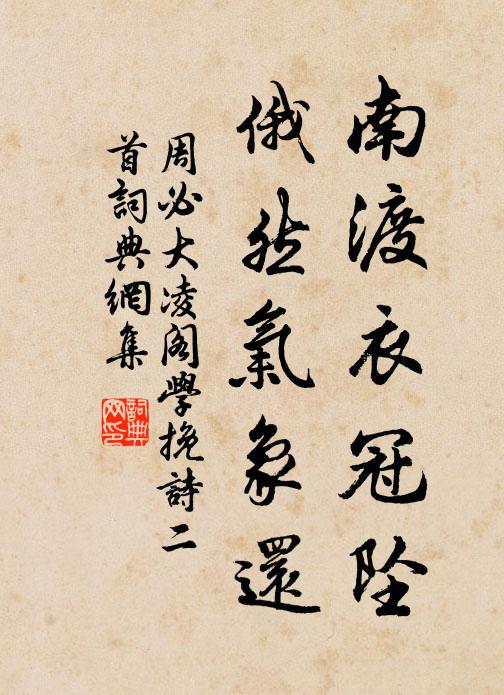 南渡衣冠坠
俄然氣象還
周必大凌阁學挽詩二
首詞典網集
詞典网印